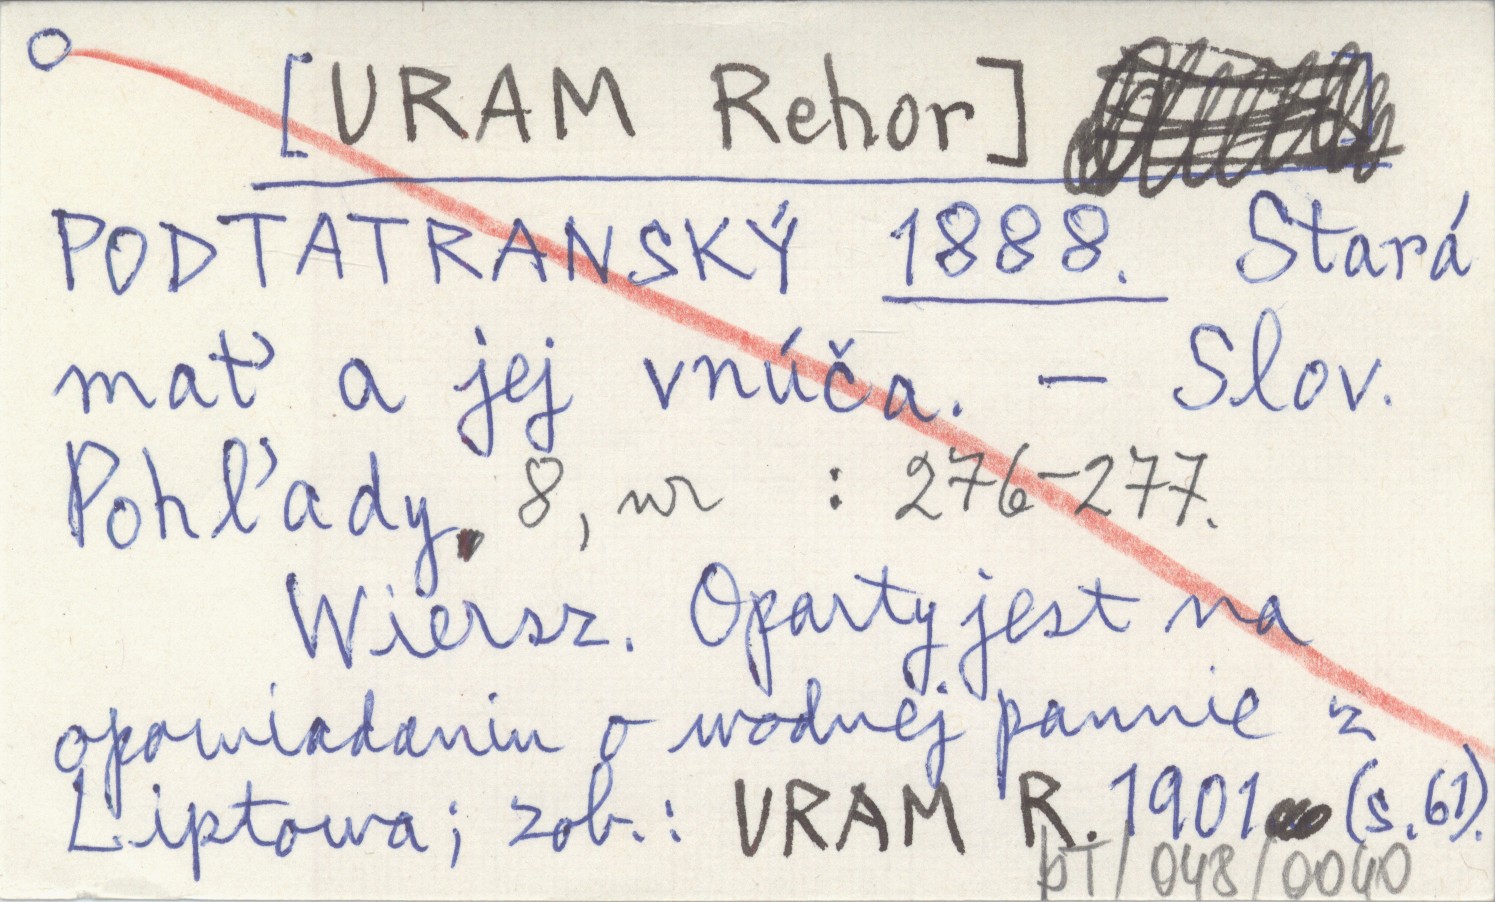 [URAM Rehor]
PODTATRANSKÝ 1888. Stará
mať a jej vnúča. – Slov.
Pohľady. 8, nr : 276-277.
Wiersz. Oparty jest na
opowiadaniu o wodnej pannie z
Liptowa; zob.: URAM R. 1901 (s. 61).
pT/048/0040